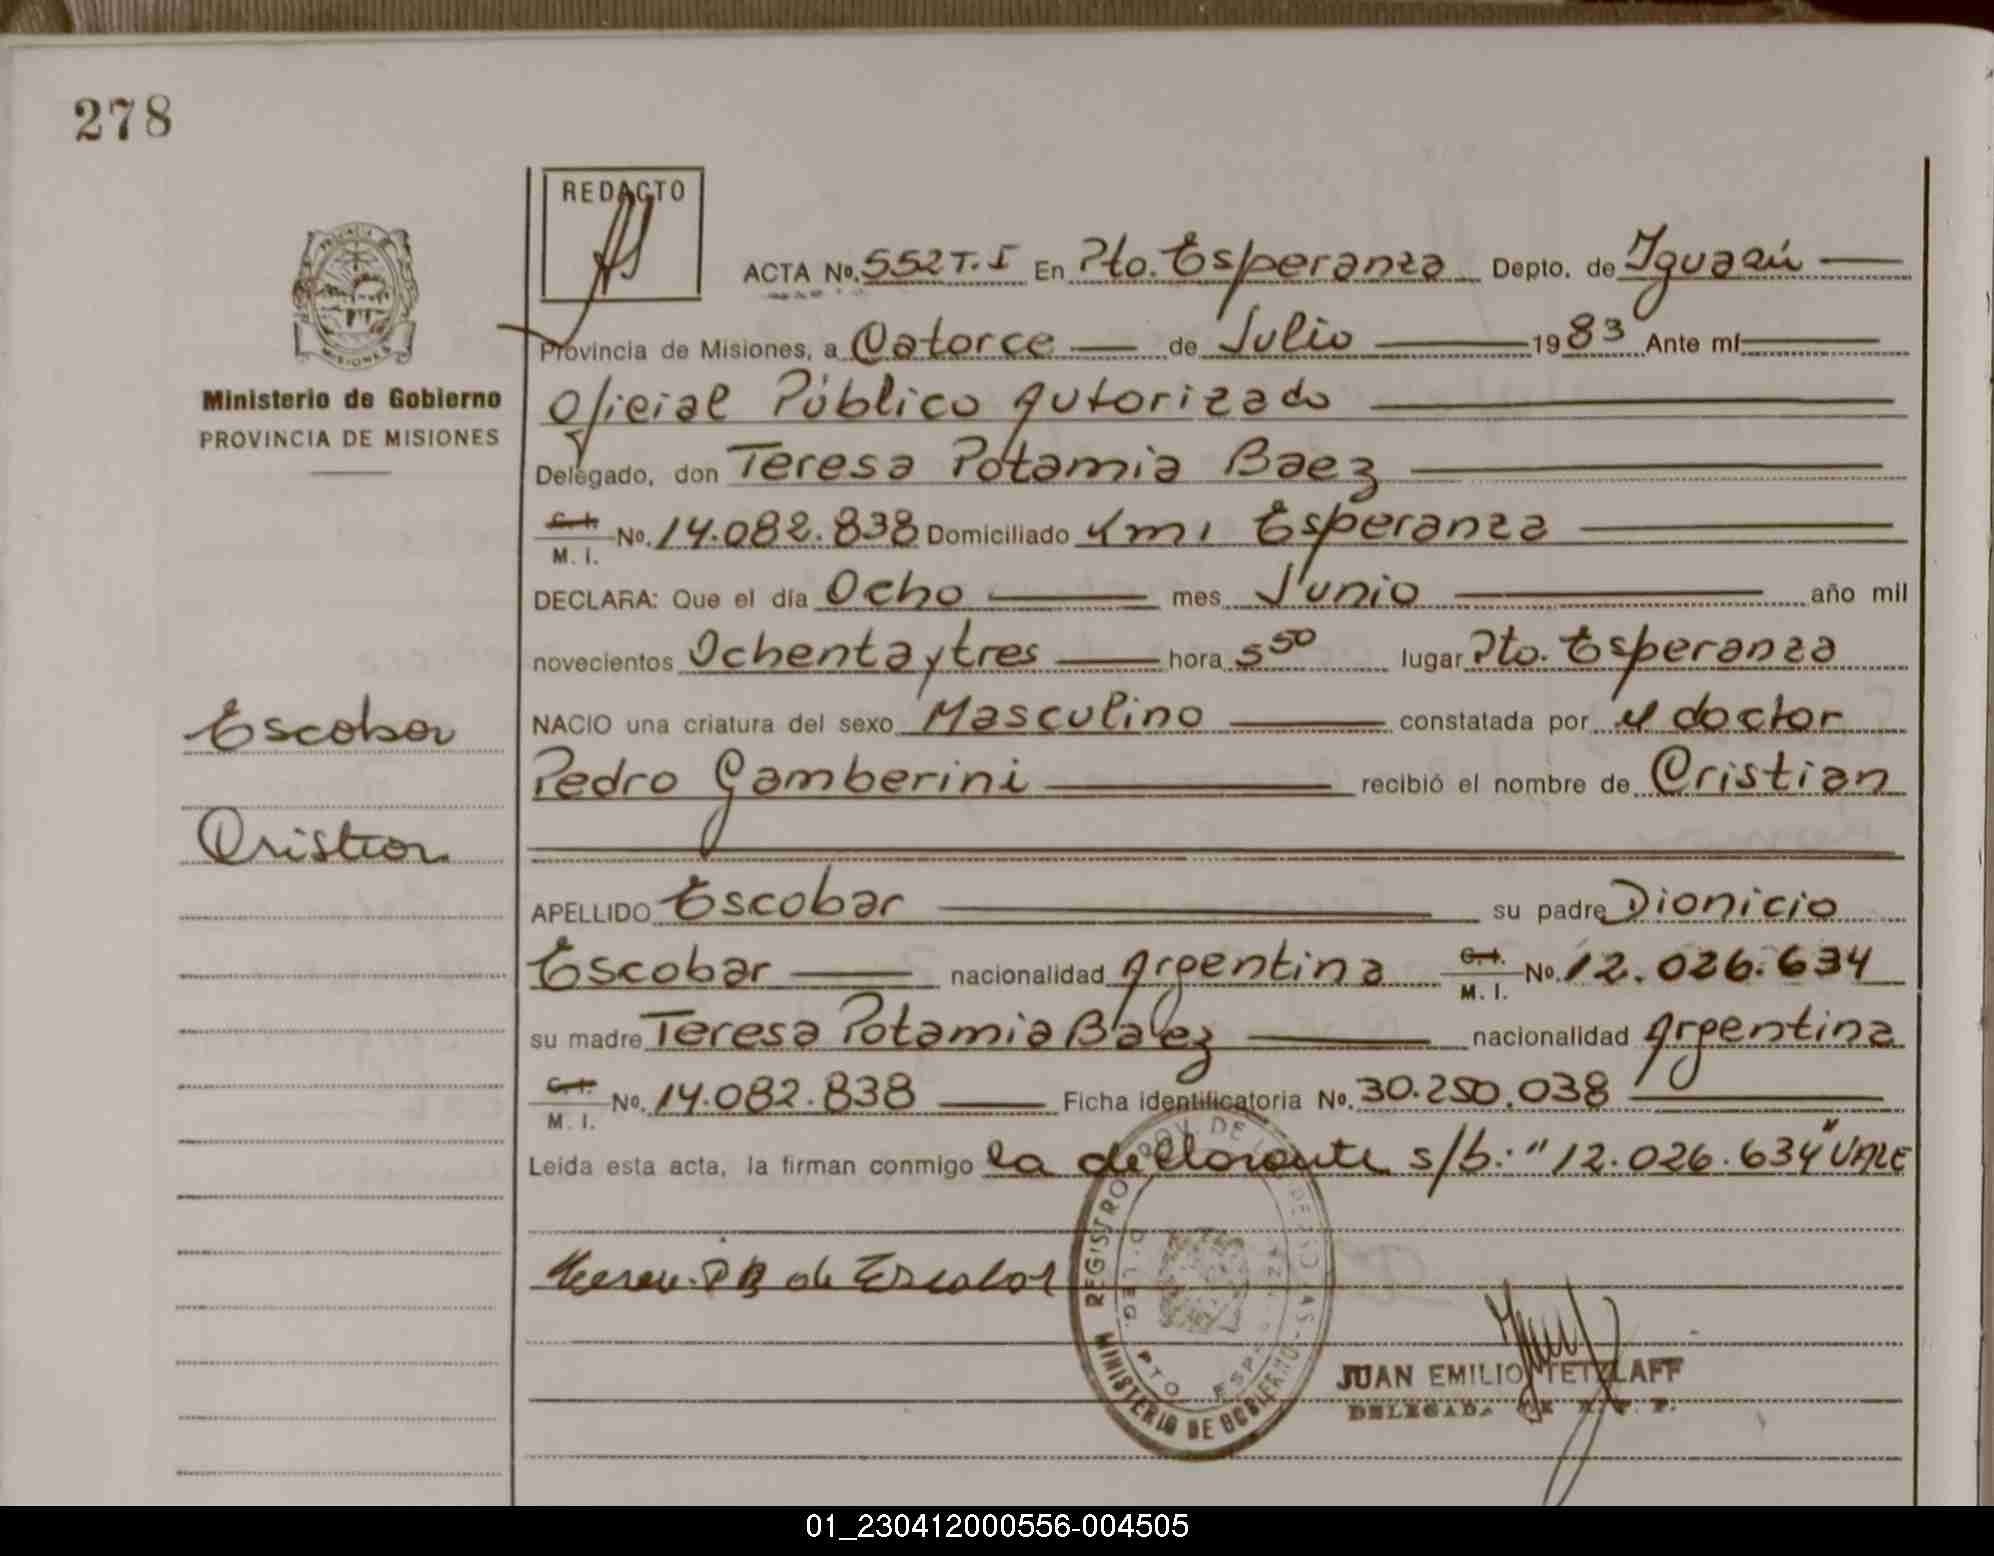 278
REDACTO
ACTA No. 552 T. I En Pto. Esperanza Depto. de Iguazú
Provincia de Misiones, a Catorce de Julio 1983 Ante mí
Ministerio de Gobierno
PROVINCIA DE MISIONES
Oficial Público Autorizado
Delegado, don Teresa Potamia Baez
C. I. M. I. No. 14.082.838 Domiciliado Km 1 Esperanza
DECLARA: Que el día Ocho mes Junio año mil
novecientos Ochenta y tres hora 5 50 lugar Pto. Esperanza
Escobar
NACIO una criatura del sexo Masculino constatada por el doctor
Pedro Gamberini recibió el nombre de Cristian
Cristian
APELLIDO Escobar su padre Dionicio
Escobar nacionalidad Argentina C. I. M. I. No. 12.026.634
su madre Teresa Potamia Baez nacionalidad Argentina
C. I. M. I. No. 14.082.838 Ficha identificatoria No. 30.250.038
Leída esta acta, la firman conmigo la declarante s/b: "12.026.634" VALE
P B de Escobar
REGISTRO PROV. DE LAS PERSONAS
MINISTERIO DE GOBIERNO
DELEG. PTO ESPERANZA
JUAN EMILIO TETZLAFF
DELEGADO
01_230412000556-004505